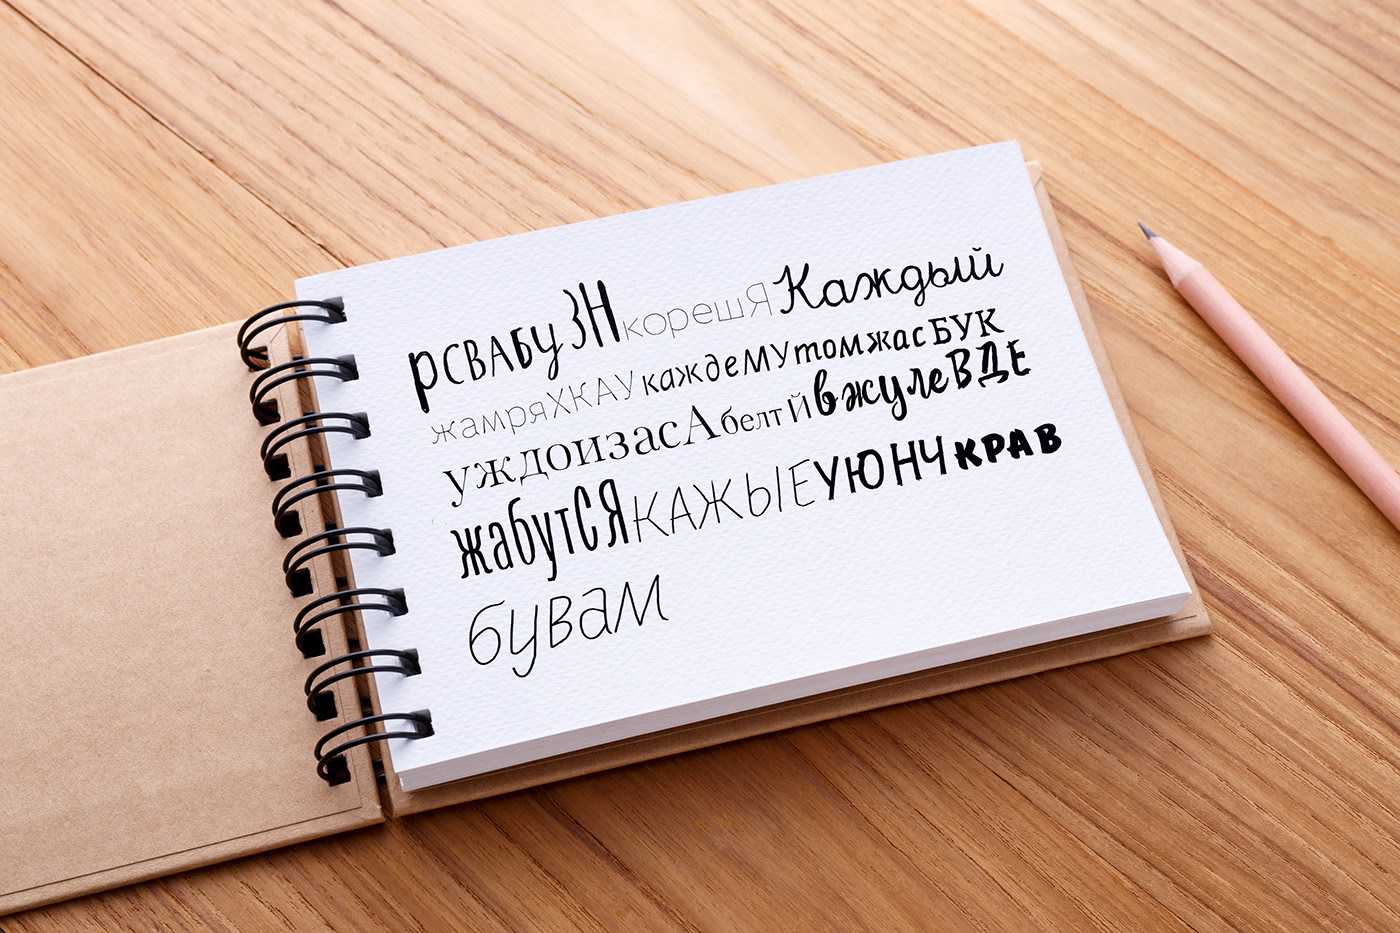 рСВАБУ ЗН корешЯ Каждый
жамряХКАУ каждеМУ томжас БУК
уждоизасА белтЙ вжулеВДЕ
жабутСЯ КАЖЫЕ УЮНЧ КРАВ
бувам